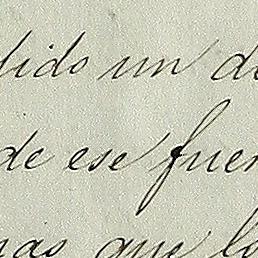 dido un de
de ese fuer
nas que lo